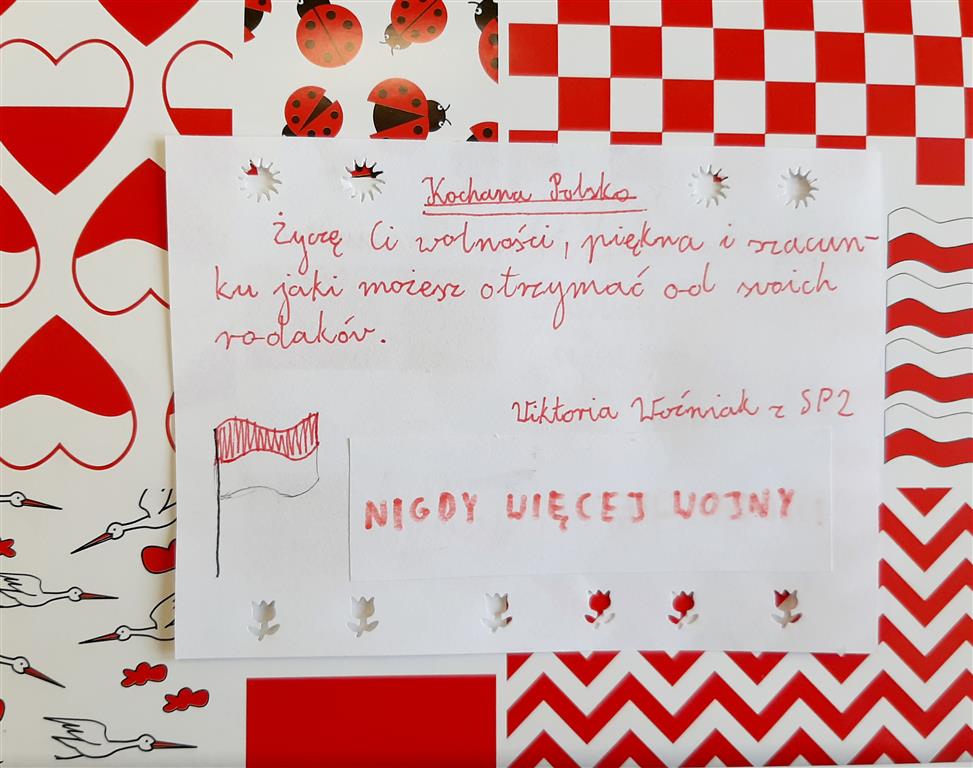 Kochana Polsko
Życzę Ci wolności, piękna i szacun-
ku jaki możesz otrzymać od swoich
rodaków.
Wiktoria Woźniak z SP2
NIGDY WIĘCEJ WOJNY